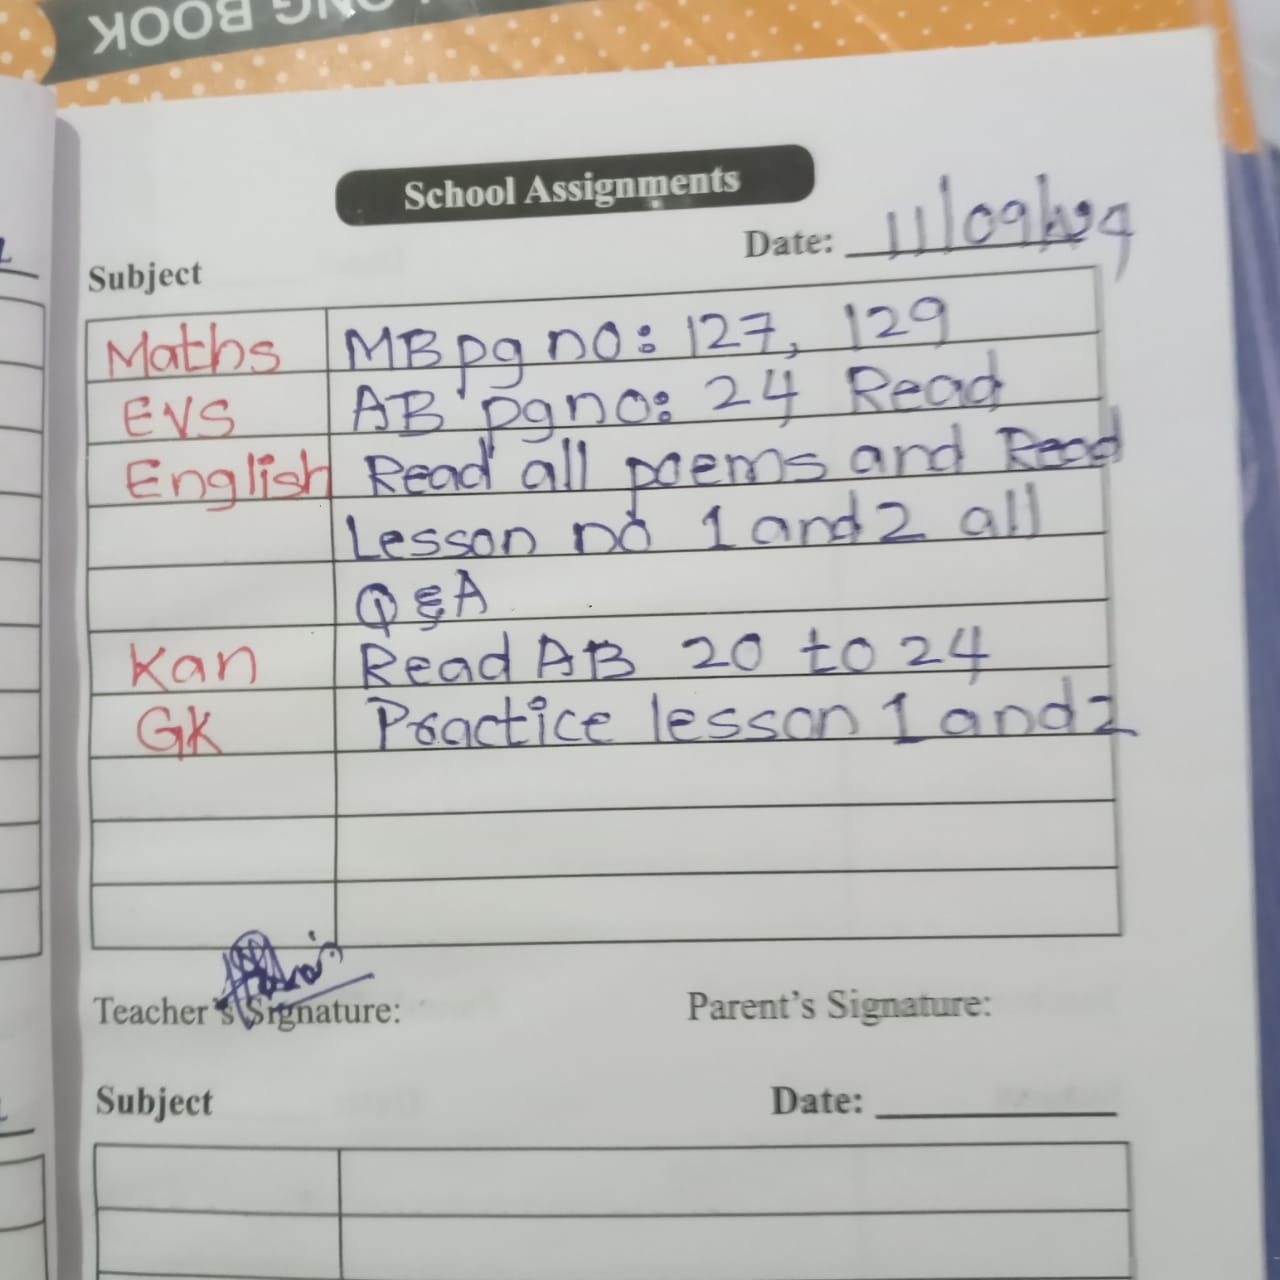 BOOK
School Assignments
Date: 11/09/2024
Subject
Maths MB pg no: 127, 129
EVS AB pg no: 24 Read
English Read all poems and Read
Lesson no 1 and 2 all
Q & A
Kan Read AB 20 to 24
GK Practice lesson 1 and 2
Teacher's Signature: Parent's Signature:
Subject Date: